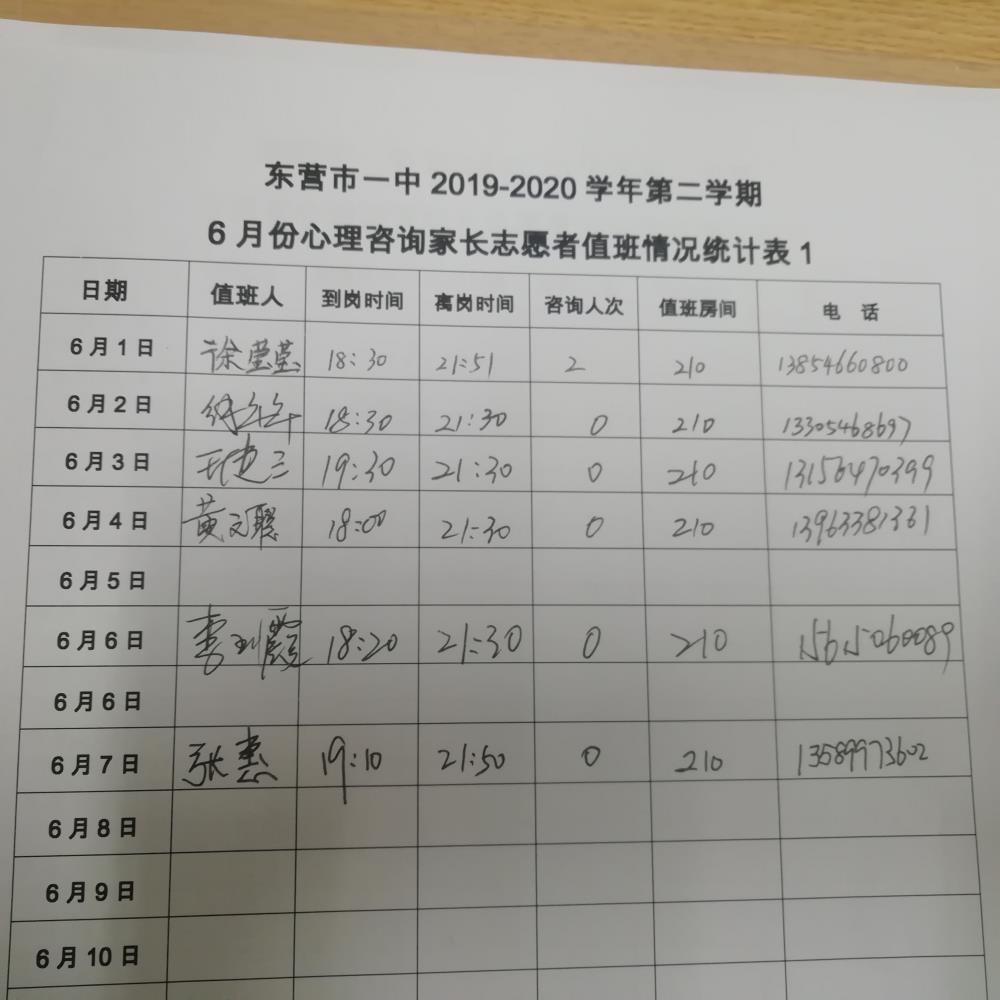 东营市一中 2019-2020 学年第二学期
6 月份心理咨询家长志愿者值班情况统计表 1
日期 值班人 到岗时间 离岗时间 咨询人次 值班房间 电 话
6 月 1 日 徐莹莹 18:30 21:51 2 210 13854660800
6 月 2 日 18:30 21:30 0 210 13305468697
6 月 3 日 19:30 21:30 0 210 13156470399
6 月 4 日 黄文聪 18:00 21:30 0 210 13963381331
6 月 5 日
6 月 6 日 李刘霞 18:20 21:30 0 210 15615060089
6 月 6 日
6 月 7 日 张惠 19:10 21:50 0 210 13589973602
6 月 8 日
6 月 9 日
6 月 10 日